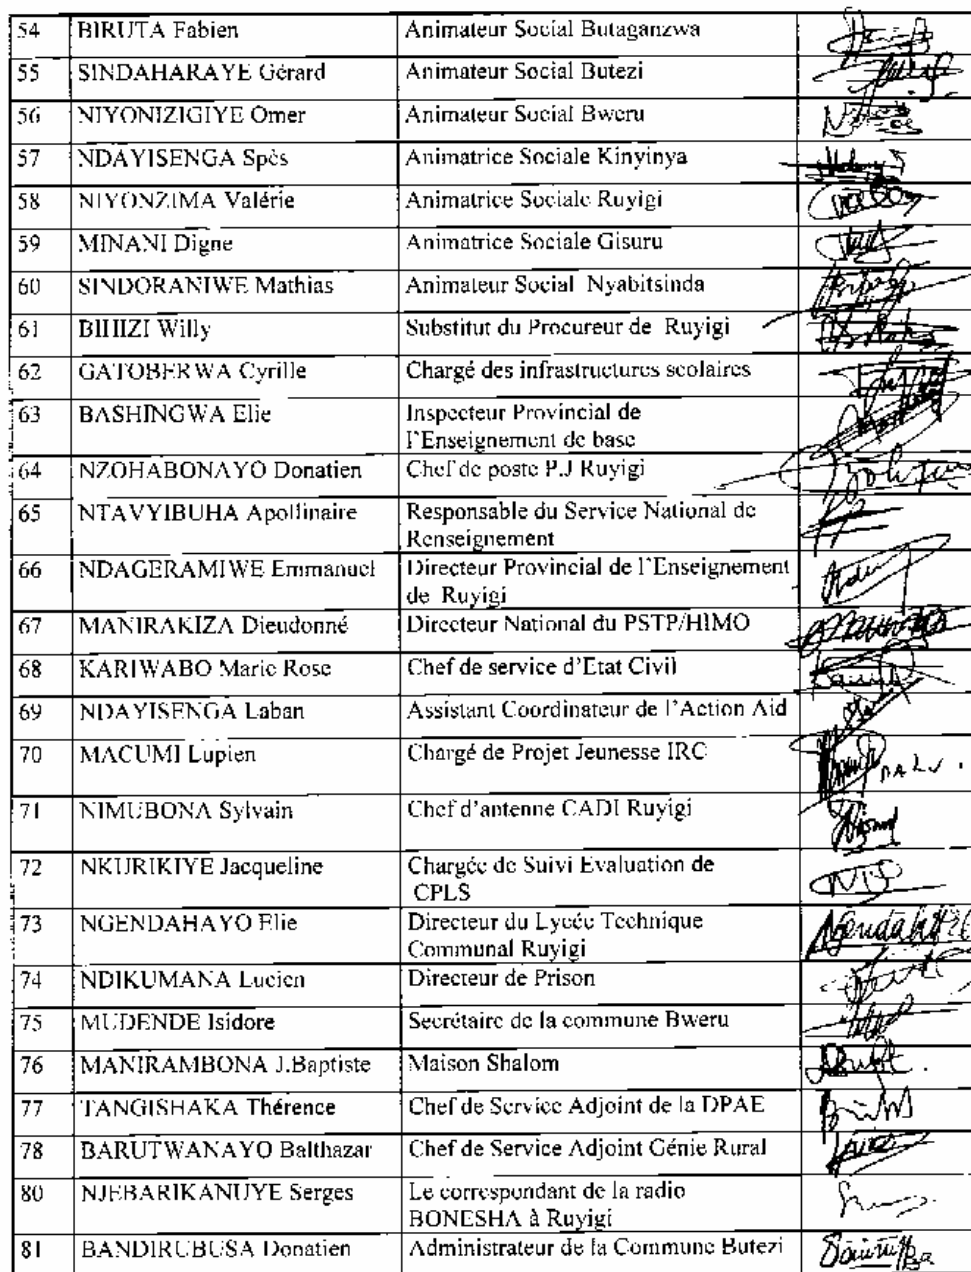 54 BIRUTA Fabien Animateur Social Butaganzwa
55 SINDAHARAYE Gérard Animateur Social Butezi
56 NIYONIZIGIYE Omer Animateur Social Bweru
57 NDAYISENGA Spès Animatrice Sociale Kinyinya
58 NIYONZIMA Valérie Animatrice Sociale Ruyigi
59 MINANI Digne Animatrice Sociale Gisuru
60 SINDORANIWE Mathias Animateur Social Nyabitsinda
61 BIHIZI Willy Substitut du Procureur de Ruyigi
62 GATOBERWA Cyrille Chargé des infrastructures scolaires
63 BASHINGWA Elie Inspecteur Provincial de
l'Enseignement de base
64 NZOHABONAYO Donatien Chef de poste P.J Ruyigi
65 NTAVYIBUHA Apollinaire Responsable du Service National de
Renseignement
66 NDAGERAMIWE Emmanuel Directeur Provincial de l'Enseignement
de Ruyigi
67 MANIRAKIZA Dieudonné Directeur National du PSTP/HIMO
68 KARIWABO Marie Rose Chef de service d'Etat Civil
69 NDAYISENGA Laban Assistant Coordinateur de l'Action Aid
70 MACUMI Lupien Chargé de Projet Jeunesse IRC
71 NIMUBONA Sylvain Chef d'antenne CADI Ruyigi
72 NKURIKIYE Jacqueline Chargée de Suivi Evaluation de
CPLS
73 NGENDAHAYO Elie Directeur du Lycée Technique
Communal Ruyigi
74 NDIKUMANA Lucien Directeur de Prison
75 MUDENDE Isidore Secrétaire de la commune Bweru
76 MANIRAMBONA J.Baptiste Maison Shalom
77 TANGISHAKA Thérence Chef de Service Adjoint de la DPAE
78 BARUTWANAYO Balthazar Chef de Service Adjoint Génie Rural
80 NJEBARIKANUYE Serges Le correspondant de la radio
BONESHA à Ruyigi
81 BANDIRUBUSA Donatien Administrateur de la Commune Butezi